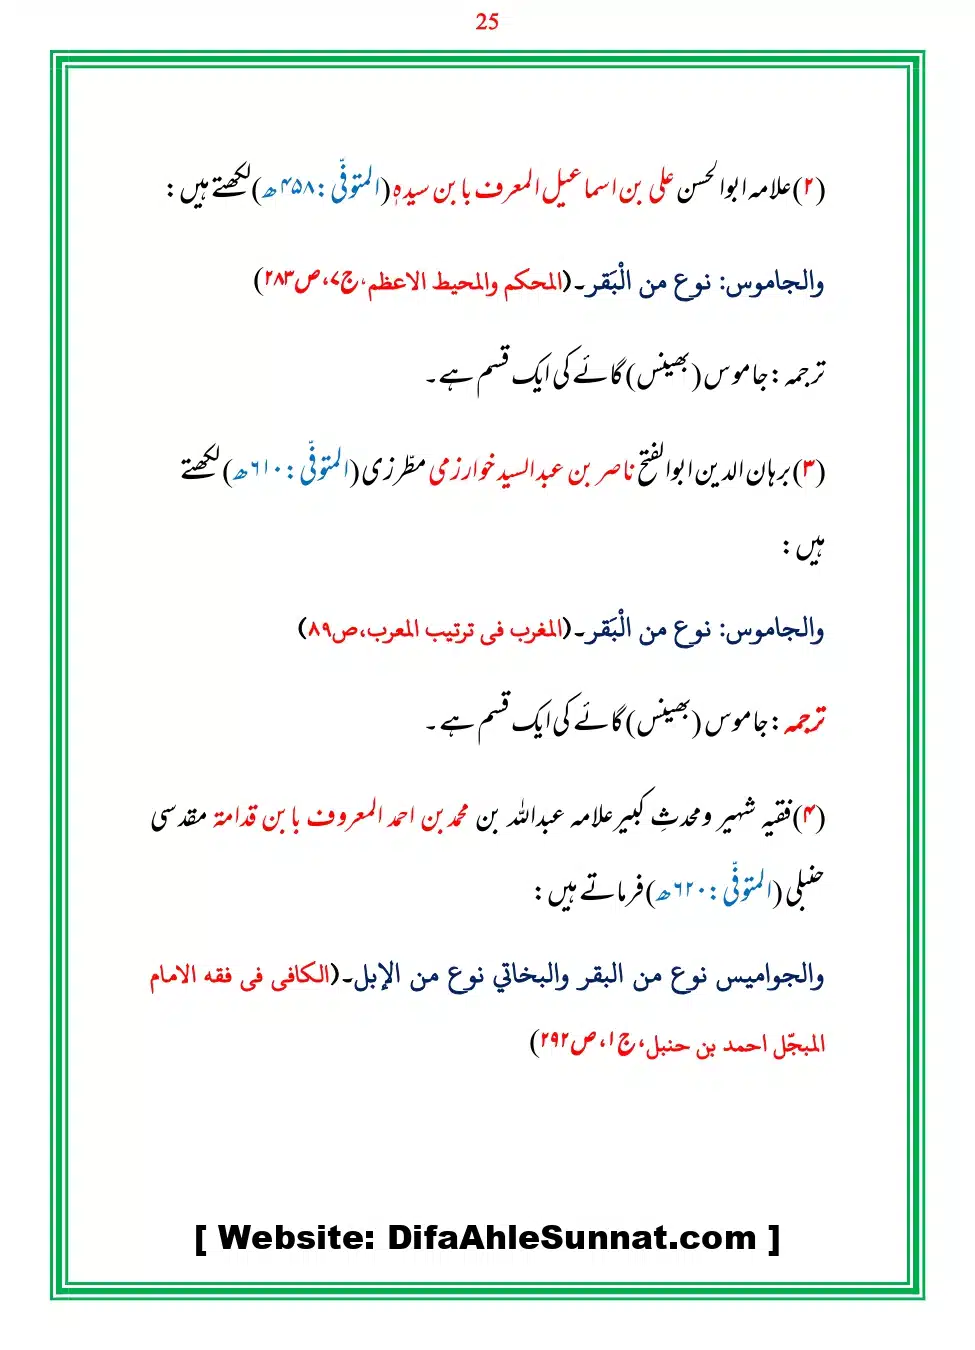 25
(۲)علامہ ابوالحسن علی بن اسماعیل المعرف بابن سیدہٖ(المتوفّی:۴۵۸ھ)لکھتے ہیں:
والجاموس: نوع من الْبَقر۔(المحکم والمحیط الاعظم،ج۷،ص۲۸۳)
ترجمہ:جاموس(بھینس)گائے کی ایک قسم ہے۔
(۳)برہان الدین ابوالفتح ناصر بن عبدالسید خوارزمی مطّرزی(المتوفّی:۶۱۰ھ)لکھتے
ہیں:
والجاموس: نوع من الْبَقر۔(المغرب فی ترتیب المعرب،ص۸۹)
ترجمہ:جاموس(بھینس)گائے کی ایک قسم ہے۔
(۴)فقیہ شہیر ومحدثِ کبیر علامہ عبداللہ بن محمد بن احمد المعروف بابن قدامۃ مقدسی
حنبلی(المتوفّی:۶۲۰ھ)فرماتے ہیں:
والجواميس نوع من البقر والبخاتي نوع من الإبل۔(الکافی فی فقہ الامام
المبجّل احمد بن حنبل،ج۱،ص۲۹۲)
[ Website: DifaAhleSunnat.com ]